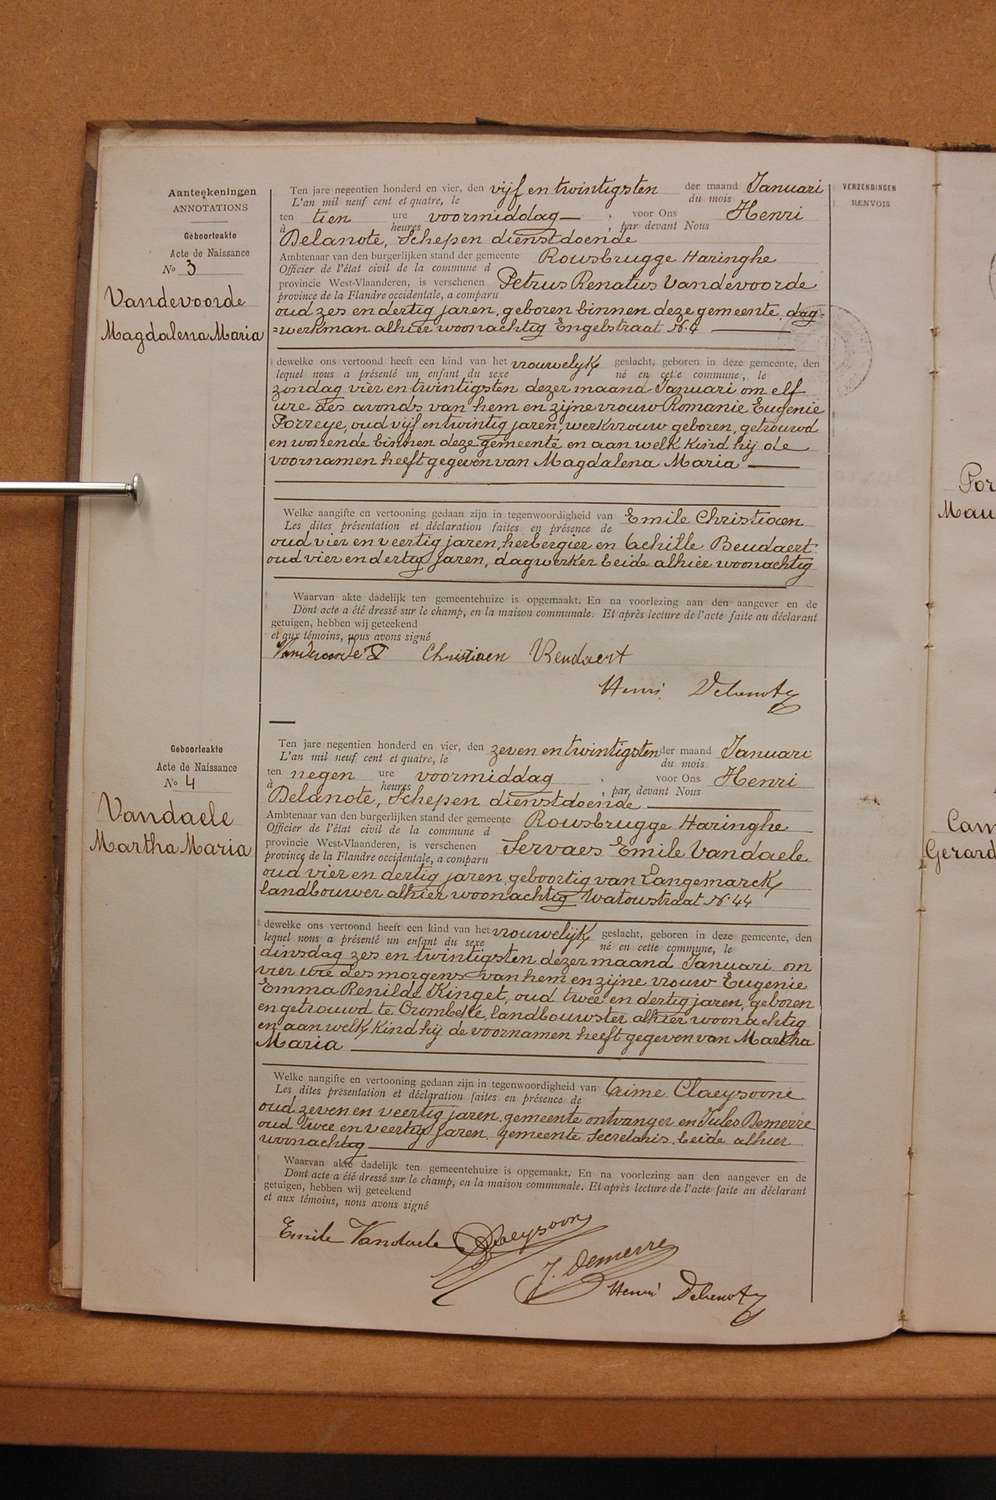 Aanteekeningen
ANNOTATIONS
Geboorteakte
Acte de Naissance
No 3
Vandevoorde
Magdalena Maria
Ten jare negentien honderd en vier, den vijf en twintigsten der maand Januari
L'an mil neuf cent et quatre, le du mois
ten tien ure voormiddag, voor Ons Henri
à heures, par devant Nous
Delanote, Schepen dienstdoende
Ambtenaar van den burgerlijken stand der gemeente Rousbrugge Haringhe
Officier de l'état civil de la commune d
provincie West-Vlaanderen, is verschenen Petrus Renatus Vandevoorde
province de la Flandre occidentale, a comparu
oud zes en dertig jaren, geboren binnen deze gemeente, dag=
=werkman alhier woonachtig Engelstraat No 4
dewelke ons vertoond heeft een kind van het vrouwelijk geslacht, geboren in deze gemeente, den
lequel nous a présenté un enfant du sexe né en cette commune, le
zondag vier en twintigsten dezer maand Januari om elf
ure des avonds van hem en zijne vrouw Romanie Eugenie
Porreye, oud vijf en twintig jaren, werkvrouw geboren, getrouwd
en wonende binnen deze gemeente en aan welk kind hij de
voornamen heeft gegeven van Magdalena Maria
Welke aangifte en vertooning gedaan zijn in tegenwoordigheid van Emile Christiaen
Les dites présentation et déclaration faites en présence de
oud vier en veertig jaren, herbergier en Achille Beudaert
oud vier en dertig jaren, dagwerker beide alhier woonachtig
Waarvan akte dadelijk ten gemeentehuize is opgemaakt. En na voorlezing aan den aangever en de
Dont acte a été dressé sur le champ, en la maison communale. Et après lecture de l'acte faite au déclarant
getuigen, hebben wij geteekend
et aux témoins, nous avons signé
Vandevoorde Christiaen Beudaert
Henri Delanote
Geboorteakte
Acte de Naissance
No 4
Vandaele
Martha Maria
Ten jare negentien honderd en vier, den zeven en twintigsten der maand Januari
L'an mil neuf cent et quatre, le du mois
ten negen ure voormiddag, voor Ons Henri
à heures, par devant Nous
Delanote, Schepen dienstdoende
Ambtenaar van den burgerlijken stand der gemeente Rousbrugge Haringhe
Officier de l'état civil de la commune d
provincie West-Vlaanderen, is verschenen Servaes Emile Vandaele
province de la Flandre occidentale, a comparu
oud vier en dertig jaren, geboortig van Langemarck,
landbouwer alhier woonachtig Watoustraat No 44
dewelke ons vertoond heeft een kind van het vrouwelijk geslacht, geboren in deze gemeente, den
lequel nous a présenté un enfant du sexe né en cette commune, le
dinsdag zes en twintigsten dezer maand Januari om
vier ure des morgens van hem en zijne vrouw Eugenie
Emma Renilde Kinget, oud twee en dertig jaren, geboren
en getrouwd te Crombeke, landbouwster alhier woonachtig
en aan welk kind hij de voornamen heeft gegeven van Martha
Maria
Welke aangifte en vertooning gedaan zijn in tegenwoordigheid van Aimé Claeysoone
Les dites présentation et déclaration faites en présence de
oud zeven en veertig jaren, gemeente ontvanger en Jules Demerre
oud twee en veertig jaren, gemeente Secretaris, beide alhier
woonachtig
Waarvan akte dadelijk ten gemeentehuize is opgemaakt. En na voorlezing aan den aangever en de
Dont acte a été dressé sur le champ, en la maison communale. Et après lecture de l'acte faite au déclarant
getuigen, hebben wij geteekend
et aux témoins, nous avons signé
Emile Vandaele Claeysoon
J. Demerre
Henri Delanote
VERZENDINGEN
RENVOIS
Por
Mau
Cam
Gerard